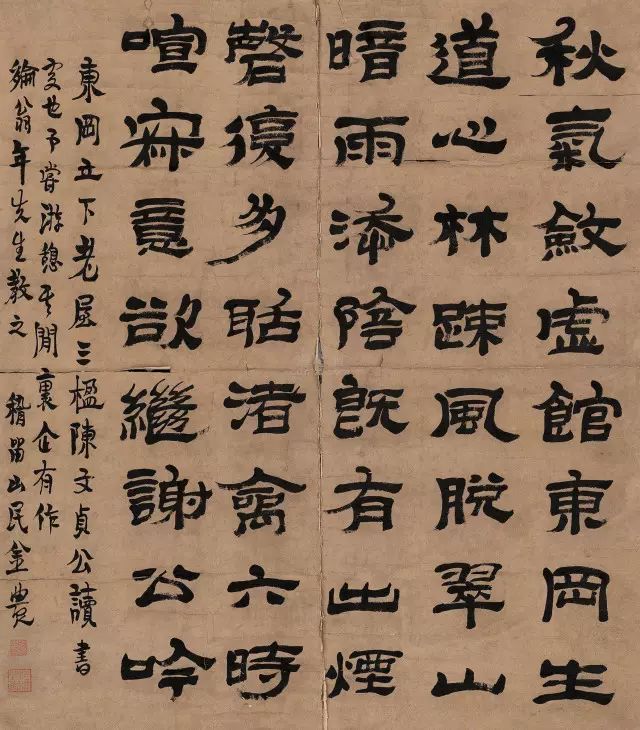 秋氣斂虛館東岡生
道心林踈風脫翠山
暗雨添陰既有出煙
磬復多聒渚禽六時
喧寂意欲繼謝公吟
東岡之下老屋三楹陳文貞公讀書
處也予嘗游憩其間褱企有作
翁年先生教之 稽留山民金農